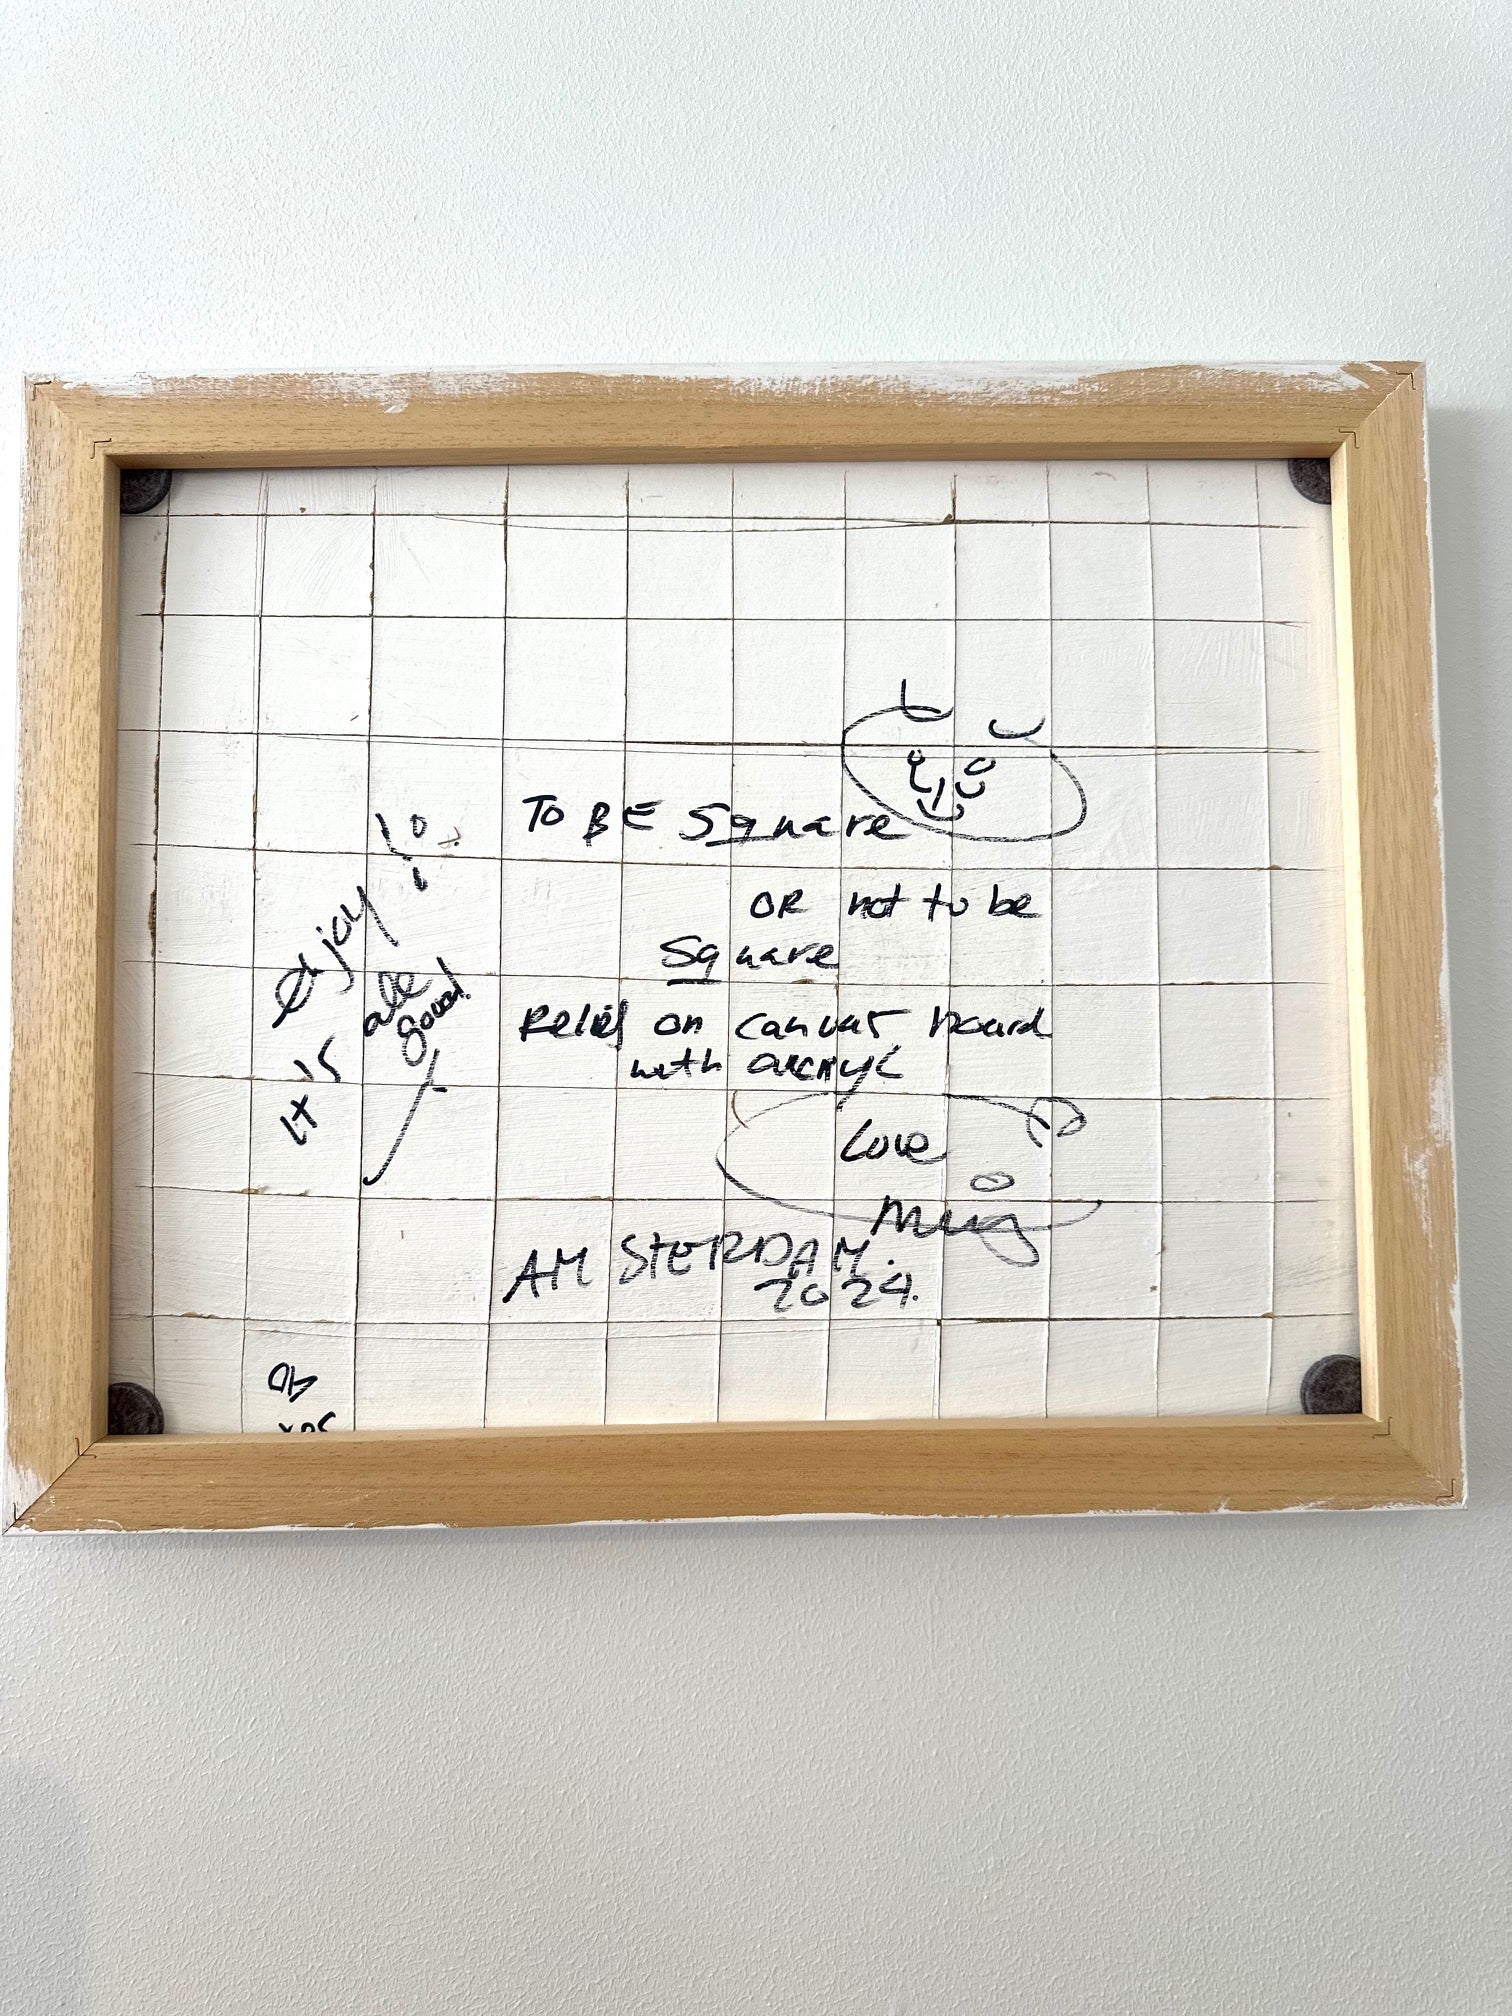 TO BE Square
OR not to be
Square
Relief on canvas board
with acryl
Love
AMSTERDAM.
2024.
enjoy!
it is
all
good!